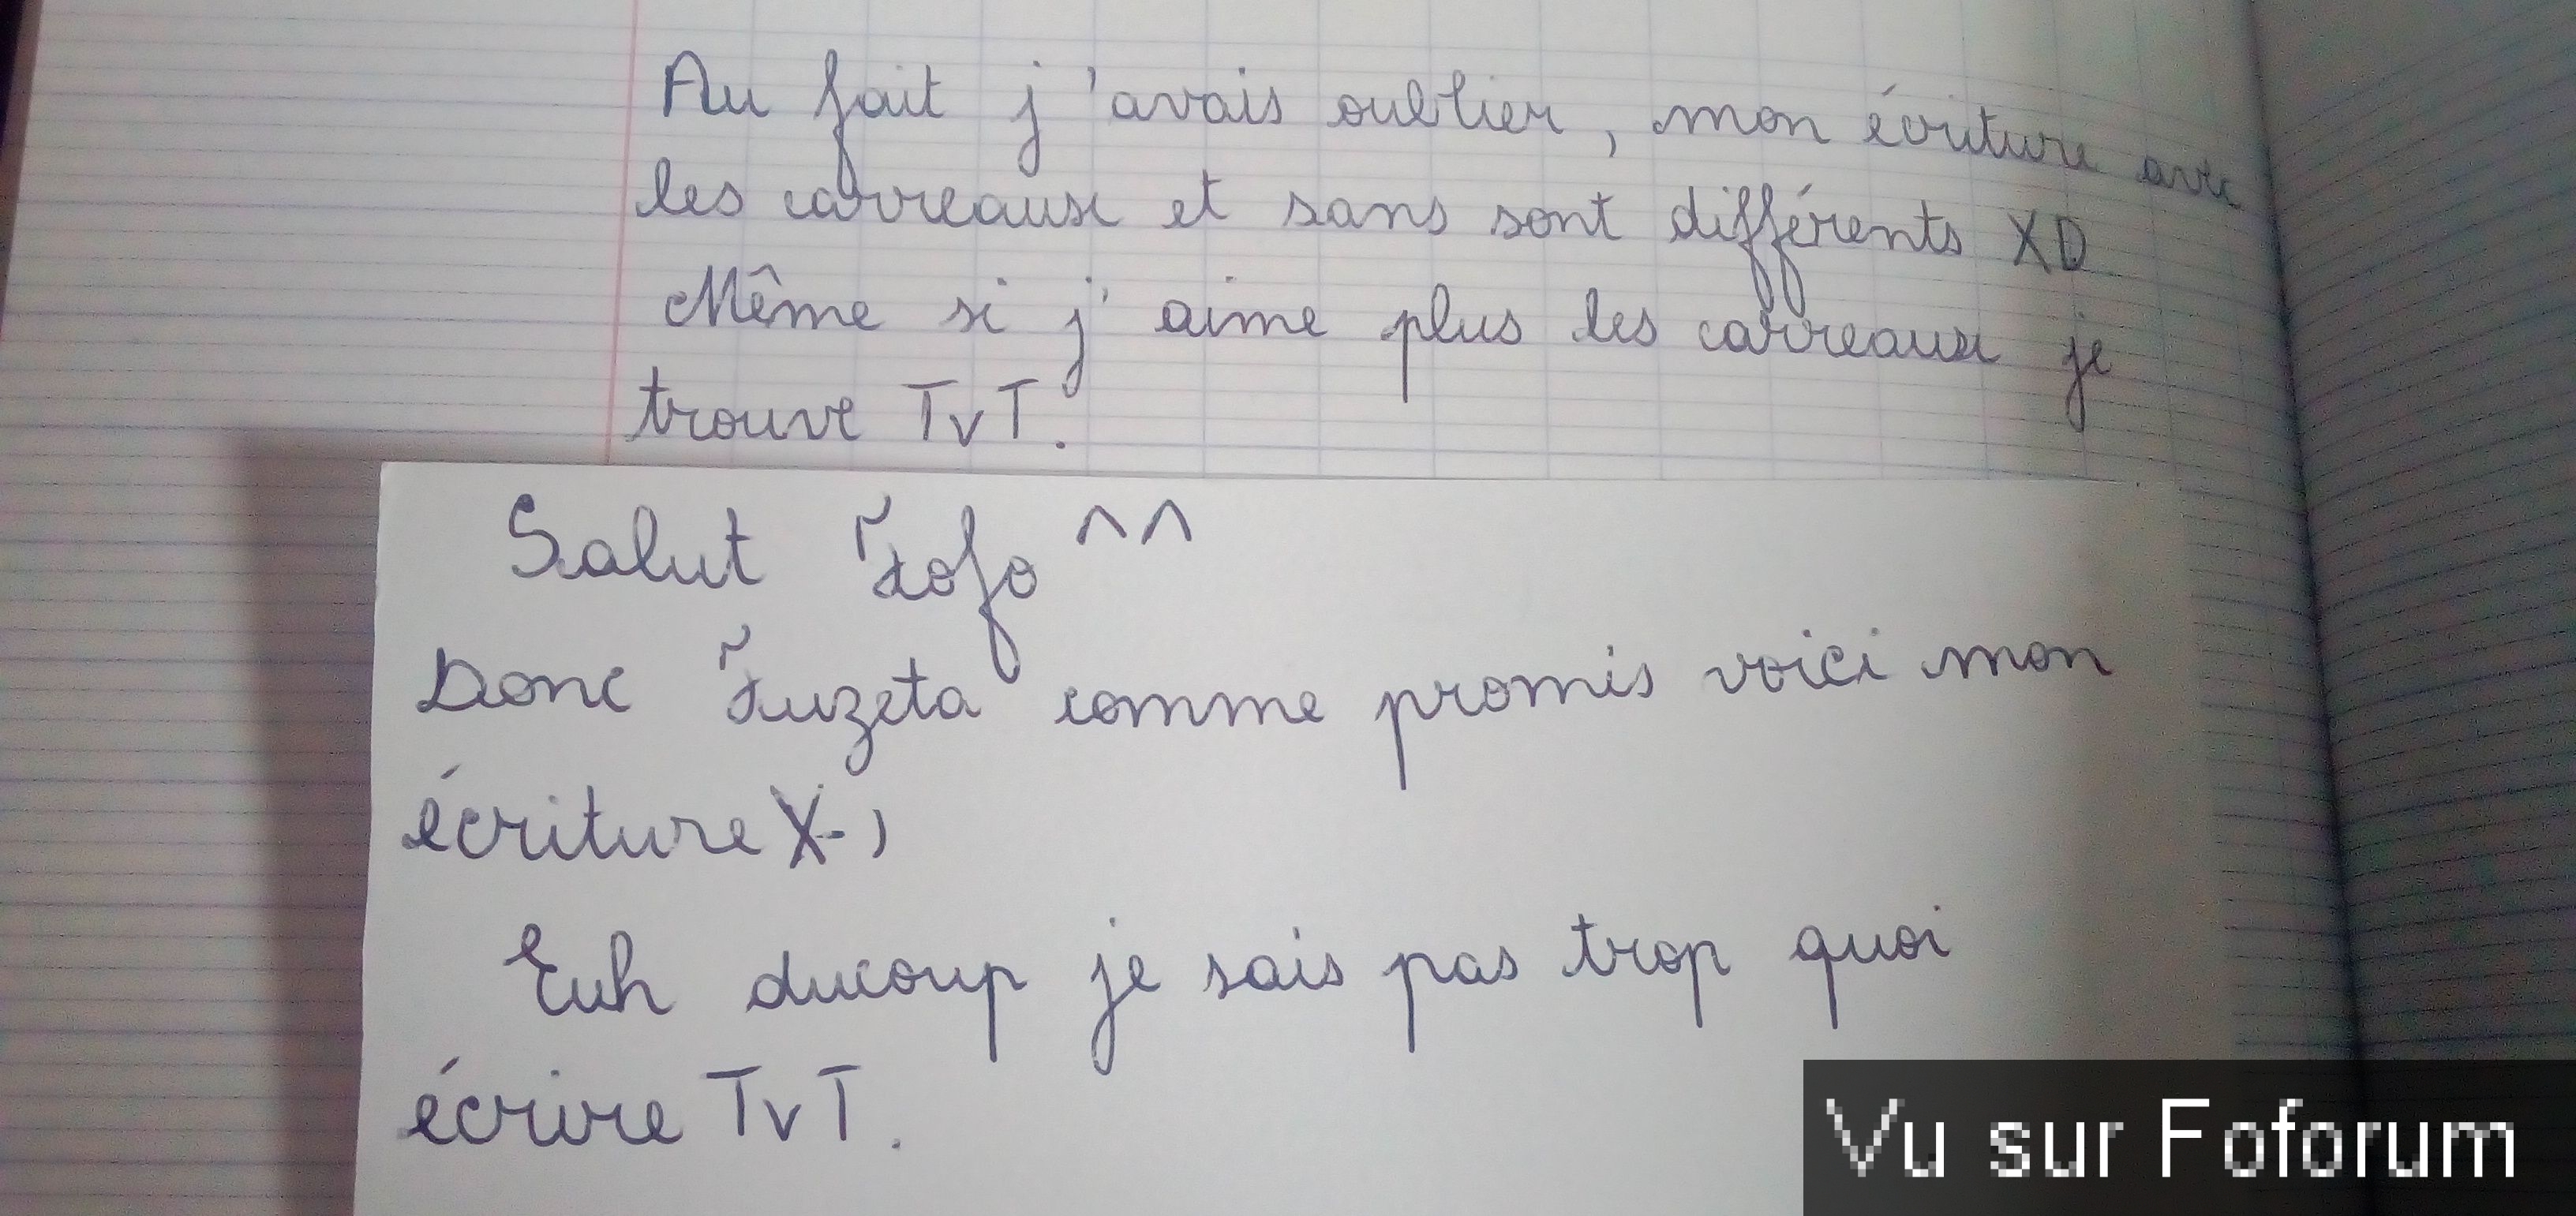 Au fait j'avais oublier, mon écriture avec
les carreaux et sans sont différents XD
Même si j'aime plus les carreaux je
trouve TvT.
Salut Fofo ^^
Donc Fuzeta comme promis voici mon
écriture X-)
Euh ducoup je sais pas trop quoi
écrire TvT.
Vu sur Foforum